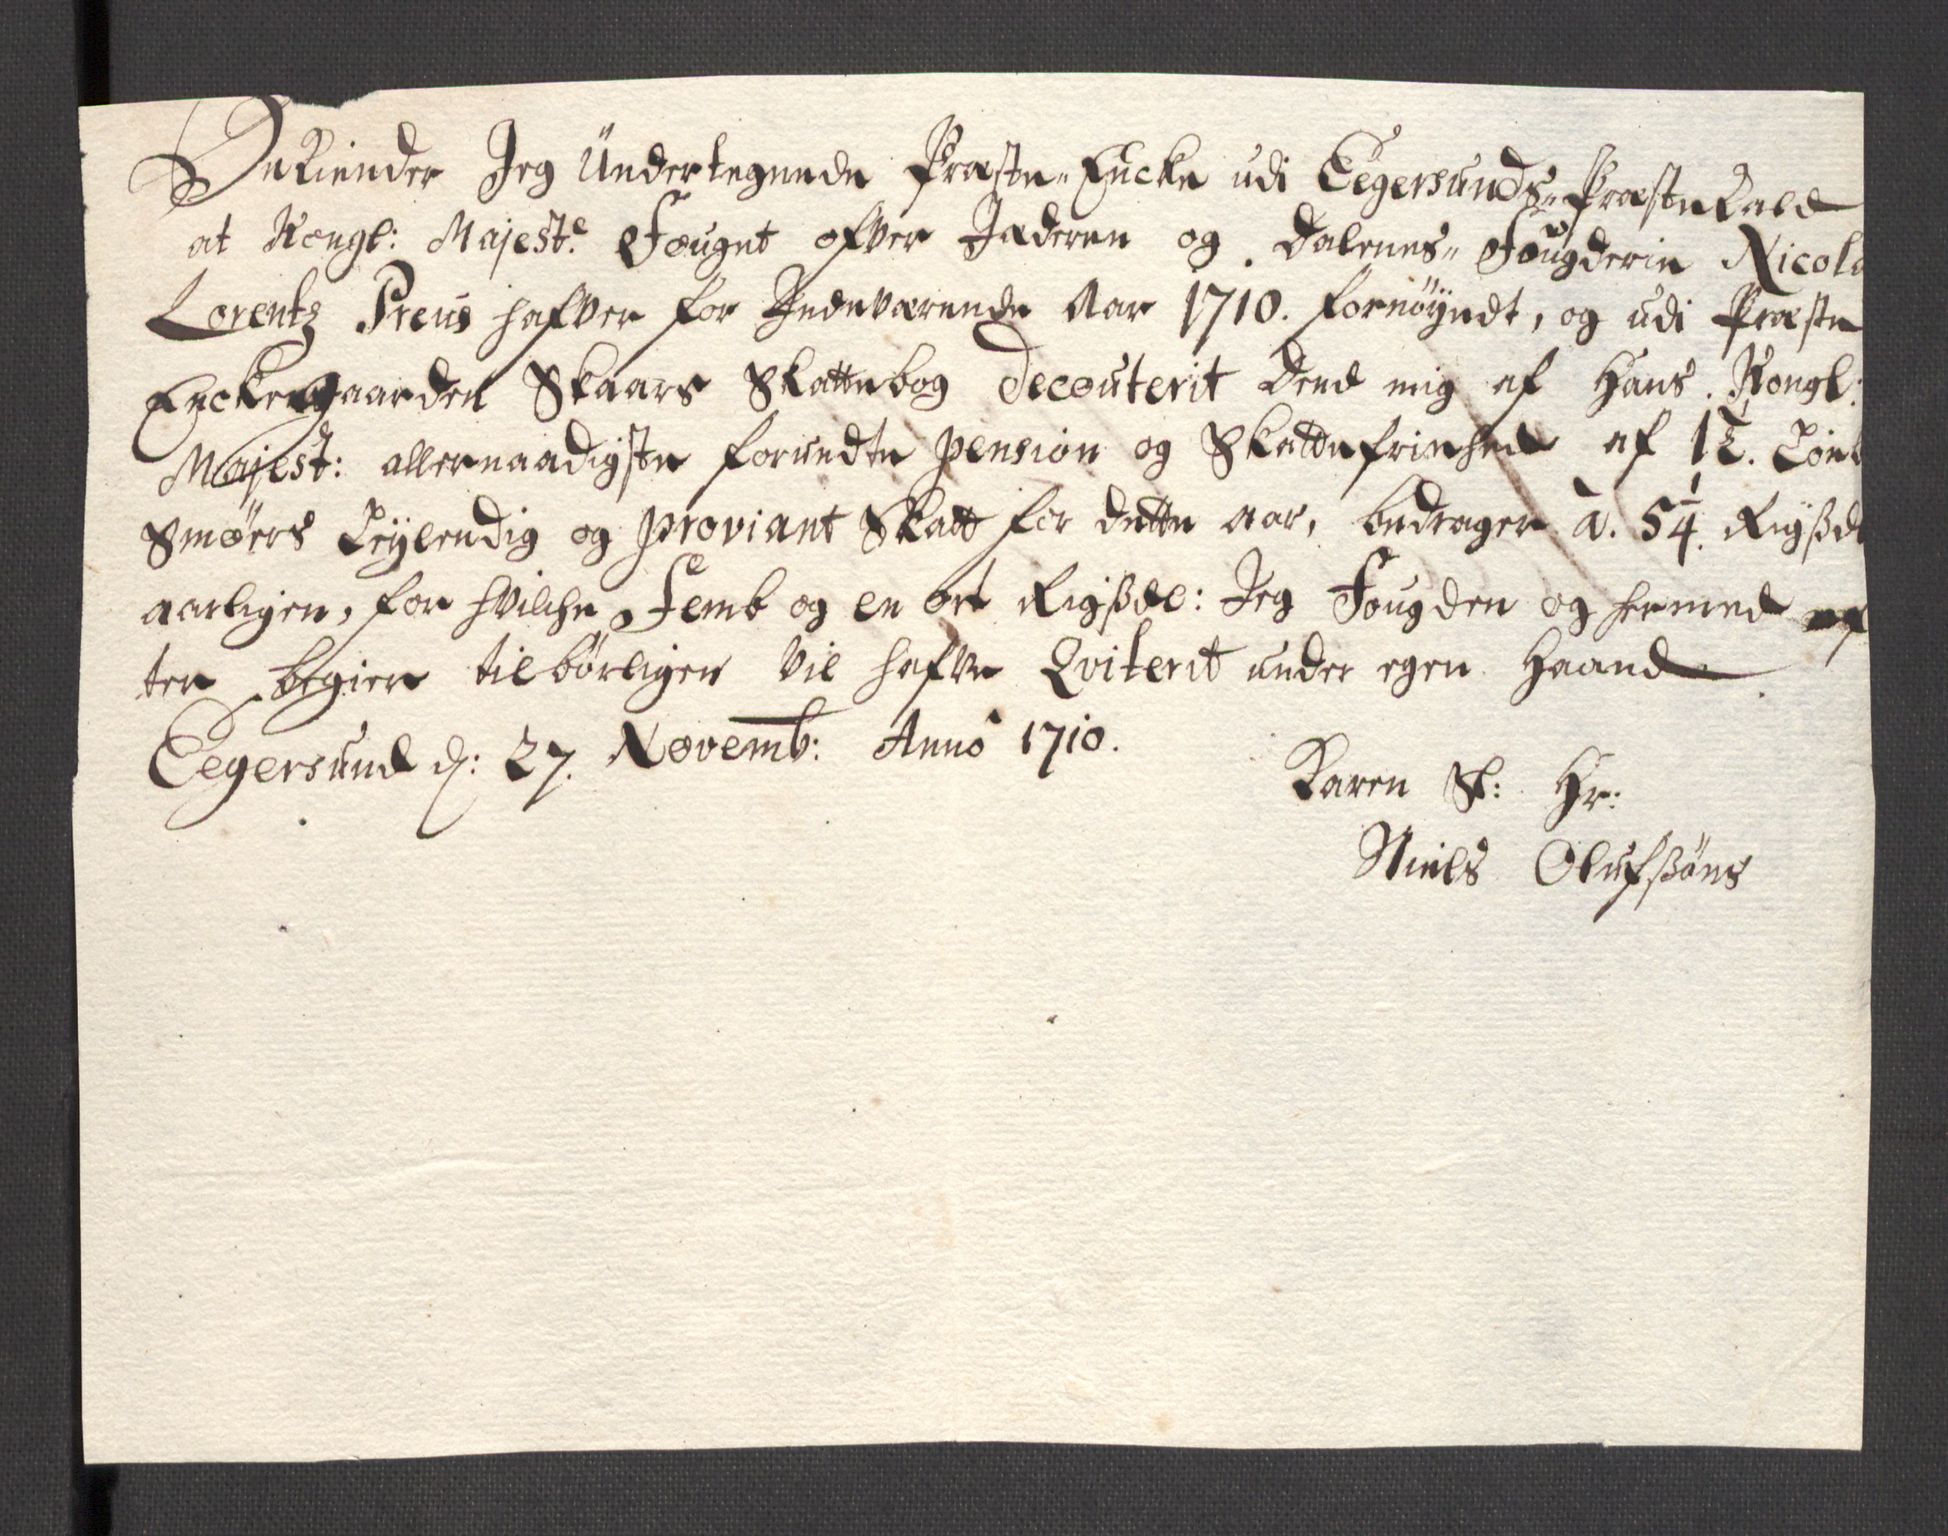 Bekiender Jeg Undertegnede Præste-Encke udi Eegersunds-Præstekald
at Kongl: Majest:e Fouget ofver Jæderen og Dalenes-Fougderie Nicola
Lorentz Preus hafver for Indeværende Aar 1710. fornöyedt, og udi Præste
Enckegaarden Skaars Skattebog Decouterit Dend mig af Hans Kongl:
Majest: allernaadigste forundte pension og Skattefriehed af 1½
Smöers Leylendig og proviant Skatt for dette aar, bedrager â. 5¼. Rigßd
aarligen, for hvilche Femb og en ort Rigßdl: Jeg Fougden og hermed ef
ter begier tilbörligen vil hafve Qviterit under egen Haand
Eegersund d: 27. Novemb: Anno 1710.
Karen Sl: Hr:
Niels Olufßöns